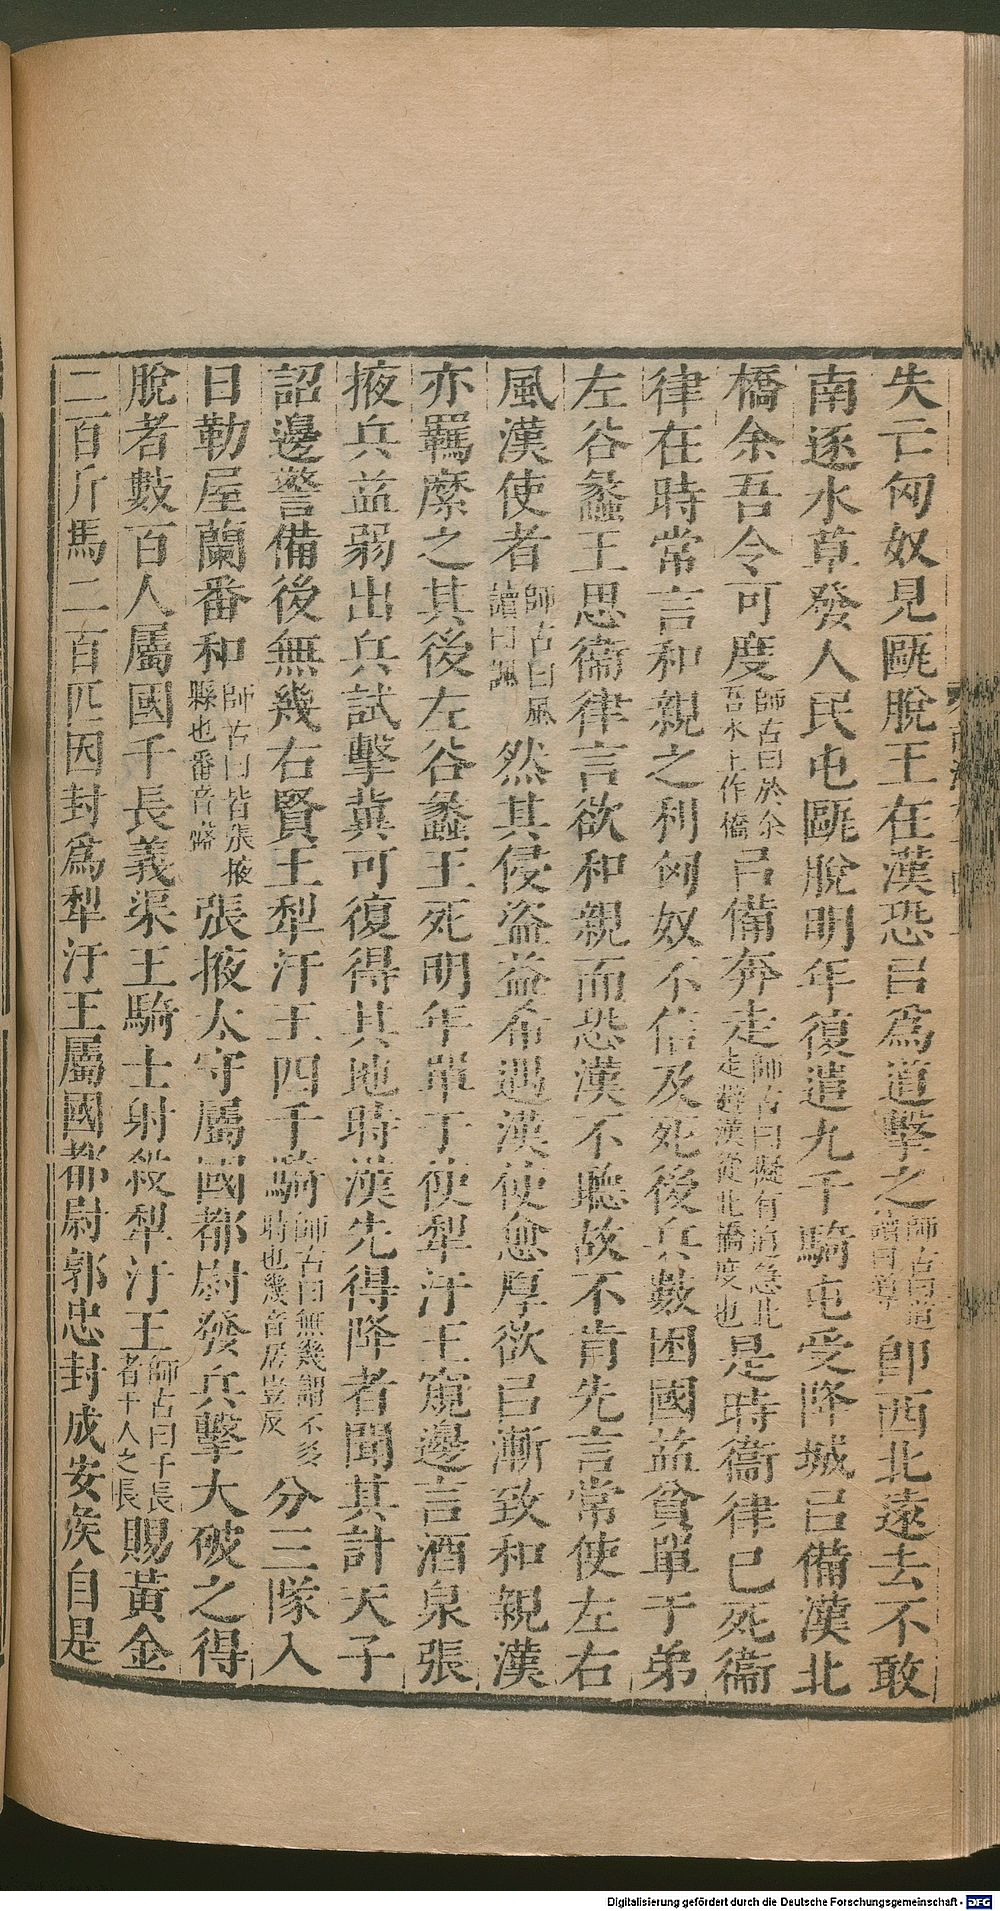 失亡匈奴見甌脫王在漢恐㠯爲道擊之師古曰道讀曰導即西北遠去不敢
南逐水草發人民屯甌脫明年復遣九千騎屯受降城㠯備漢北
橋余吾令可度師古曰於余吾水上作橋㠯備奔走師古曰擬有迫急北走避漢從北橋度也是時衞律已死衞
律在時常言和親之利匈奴不信及死後兵數困國益貧單于弟
左谷蠡王思衞律言欲和親而恐漢不聽故不肯先言常使左右
風漢使者師古曰風讀曰諷然其侵盜益希遇漢使愈厚欲㠯漸致和親漢
亦羈縻之其後左谷蠡王死明年單于使犁汙王窺邊言酒泉張
掖兵益弱出兵試擊冀可復得其地時漢先得降者聞其計天子
詔邊警備後無幾右賢王犁汙王四千騎師古曰無幾謂不多時也幾音居豈反分三隊入
日勒屋蘭番和師古曰皆張掖縣也番音盤張掖太守屬國都尉發兵擊大破之得
脫者數百人屬國千長義渠王騎士射殺犁汙王師古曰千長者千人之長賜黃金
二百斤馬二百匹因封爲犁汙王屬國都尉郭忠封成安矦自是
Digitalisierung gefördert durch die Deutsche Forschungsgemeinschaft - DFG